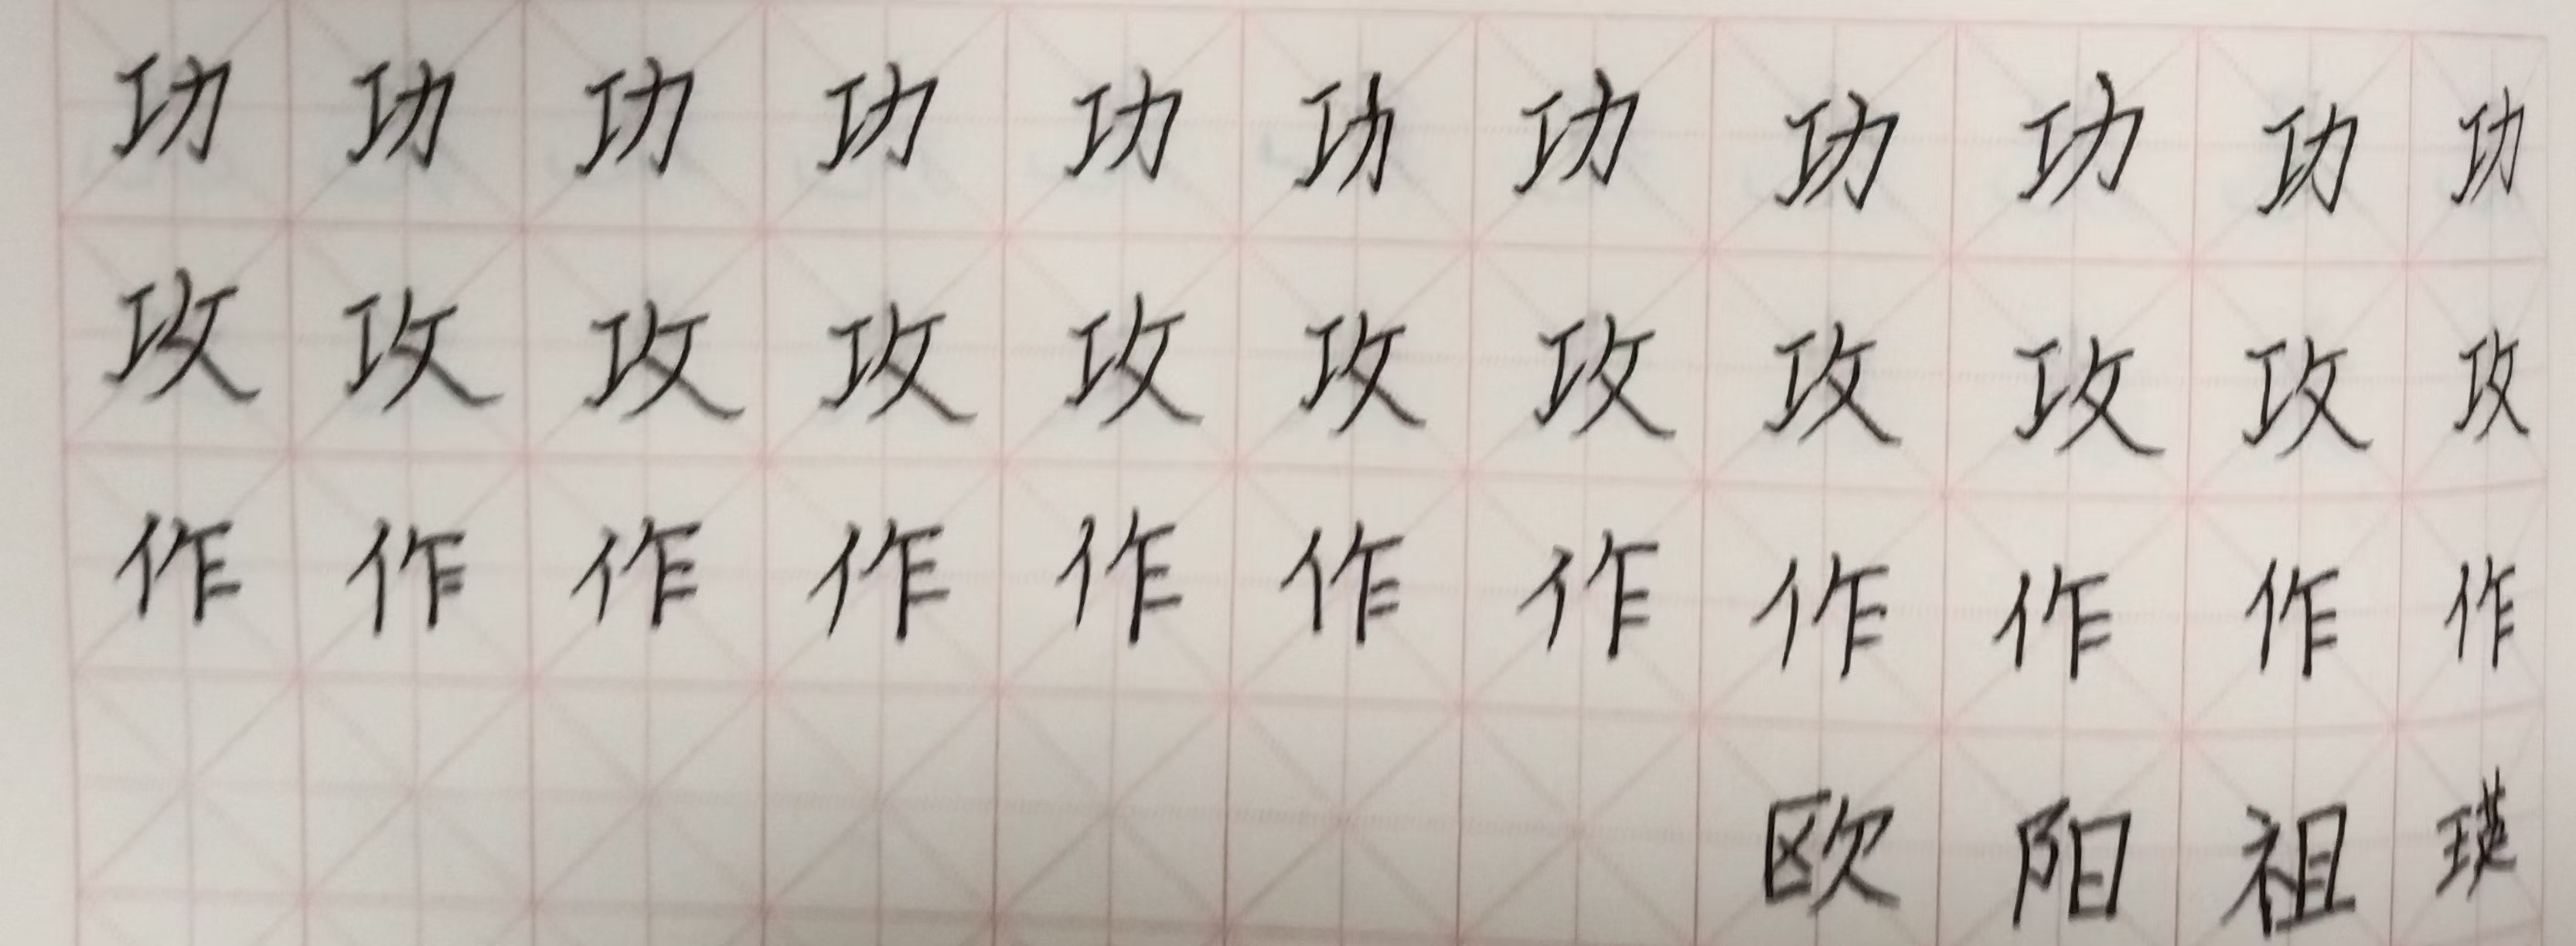 功功功功功功功功功功功
攻攻攻攻攻攻攻攻攻攻攻
作作作作作作作作作作作
欧阳祖瑛